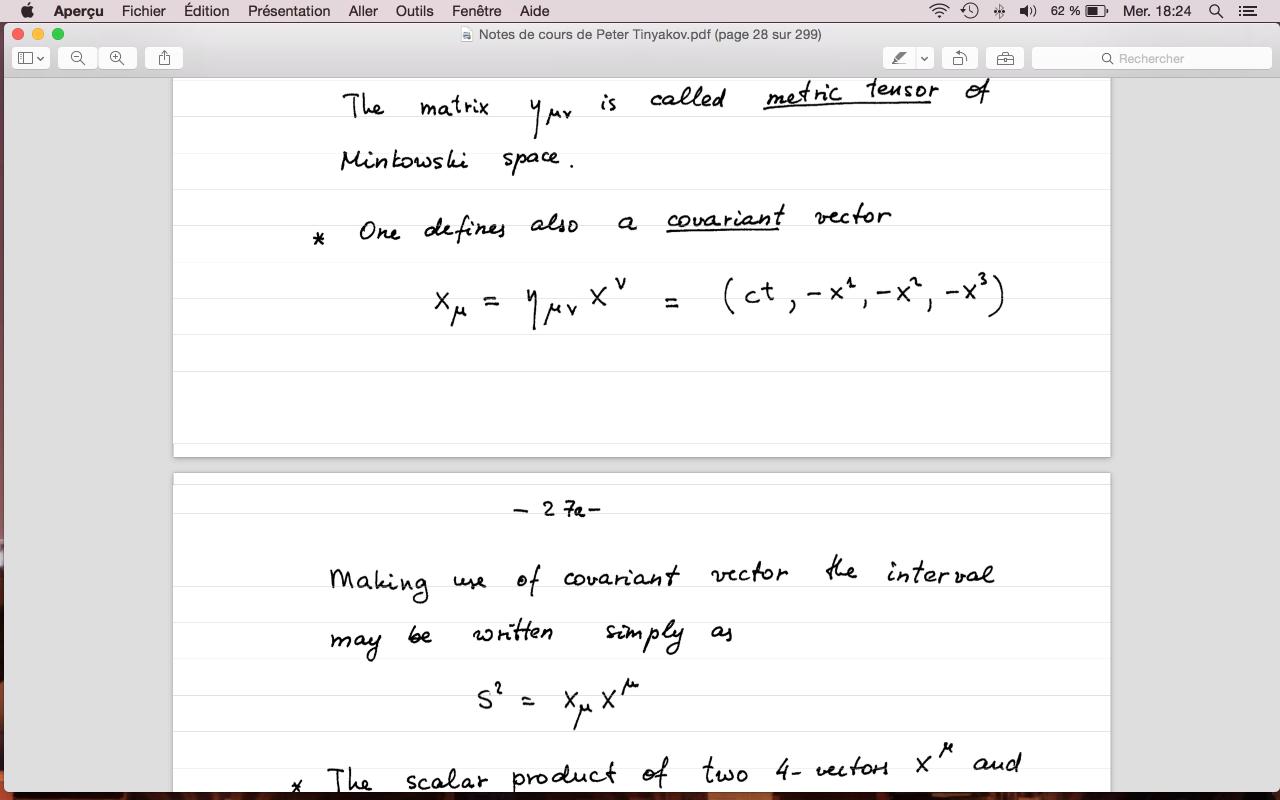 Aperçu Fichier Édition Présentation Aller Outils Fenêtre Aide 62 % Mer. 18:24
Notes de cours de Peter Tinyakov.pdf (page 28 sur 299)
Rechercher
The matrix η_μν is called metric tensor of
Minkowski space.
* One defines also a covariant vector
x_μ = η_μν x^ν = (ct, -x^1, -x^2, -x^3)
- 27a -
Making use of covariant vector the interval
may be written simply as
S^2 = x_μ x^μ
* The scalar product of two 4-vectors x^μ and